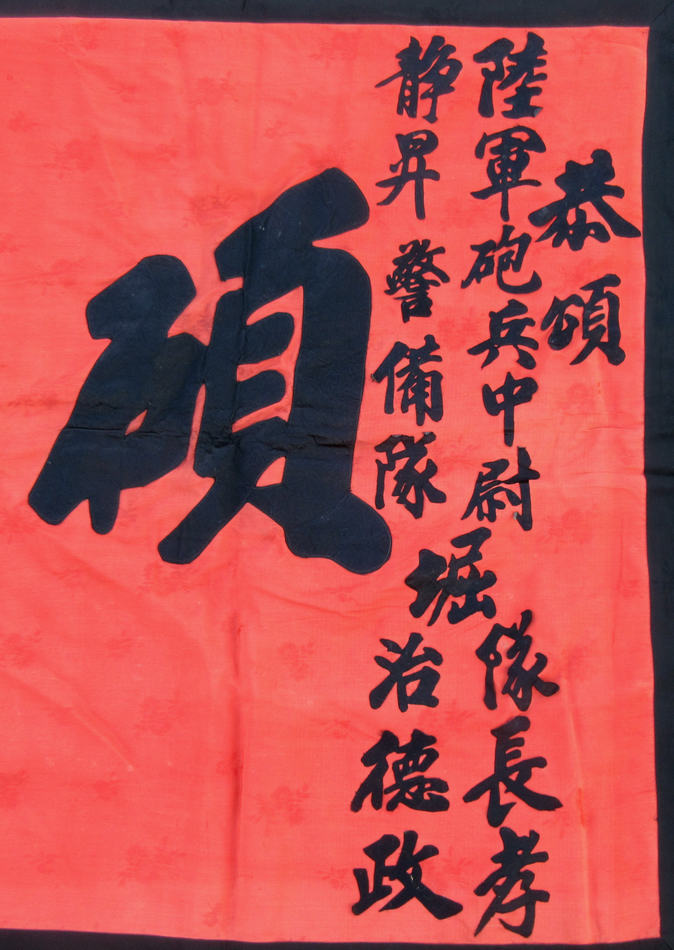 恭頌
陸軍砲兵中尉
静昇警備隊
堀
隊長孝
治德政
碩